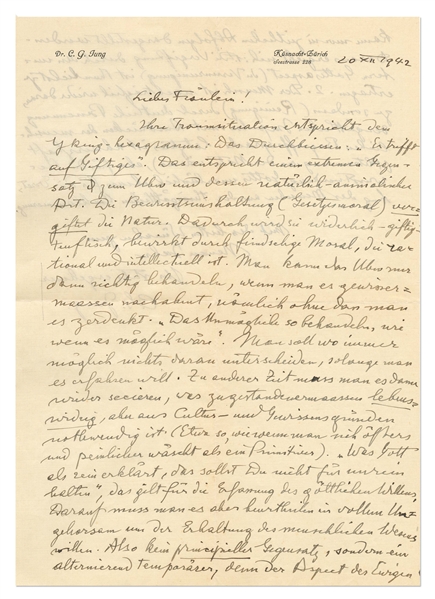 Dr. C. G. Jung
Küsnacht-Zürich
Seestrasse 228
20 XII 1942
Liebes Fräulein!
Ihre Traumsituation entspricht dem
Y king-hexagramm: Das Durchbeissen: „Er trifft
auf Giftiges". Das entspricht einem extremen Gegen-
satz zum Ubw und dessen natürlich-animalischer
Art. Die Bewusstseinshaltung (Gesetzesmoral) ver-
giftet die Natur. Dadurch wird sie widerlich-giftig-
teuflisch, bewirkt durch feindselige Moral, die ra-
tional und intellectuell ist. Man kann das Ubw nur
dann richtig behandeln, wenn man es gewisser-
maassen nachahmt, nämlich ohne dass man
es zerdenkt. „Das Unmögliche so behandeln, wie
wenn es möglich wäre". Man soll wo immer
möglich nichts daran unterscheiden, solange man
es erfahren will. Zu anderer Zeit muss man es dann
wieder secieren, was zugestandenermaassen lebens-
widrig, aber aus Cultur- und Gewissensgründen
nothwendig ist. (Etwa so, wie wenn man sich öfters
und peinlicher wäscht als ein Primitiver). „Was Gott
als rein erklärt, das sollst Du nicht für unrein
halten", das gilt für die Erfassung des göttlichen Willens.
Darauf muss man es aber beurtheilen in vollem Un-
gehorsam um der Erhaltung des menschlichen Wesens
willen. Also kein principieller Gegensatz, sondern ein
alternierend temporärer, denn der Aspect des Ewigen